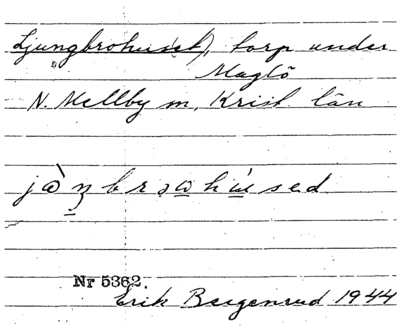 Ljungbrohuset), torp under
Maglö
N. Mellby sn, Krist. län
jòŋbrωhùsed
Nr 5362.
Erik Bergenrud 1944